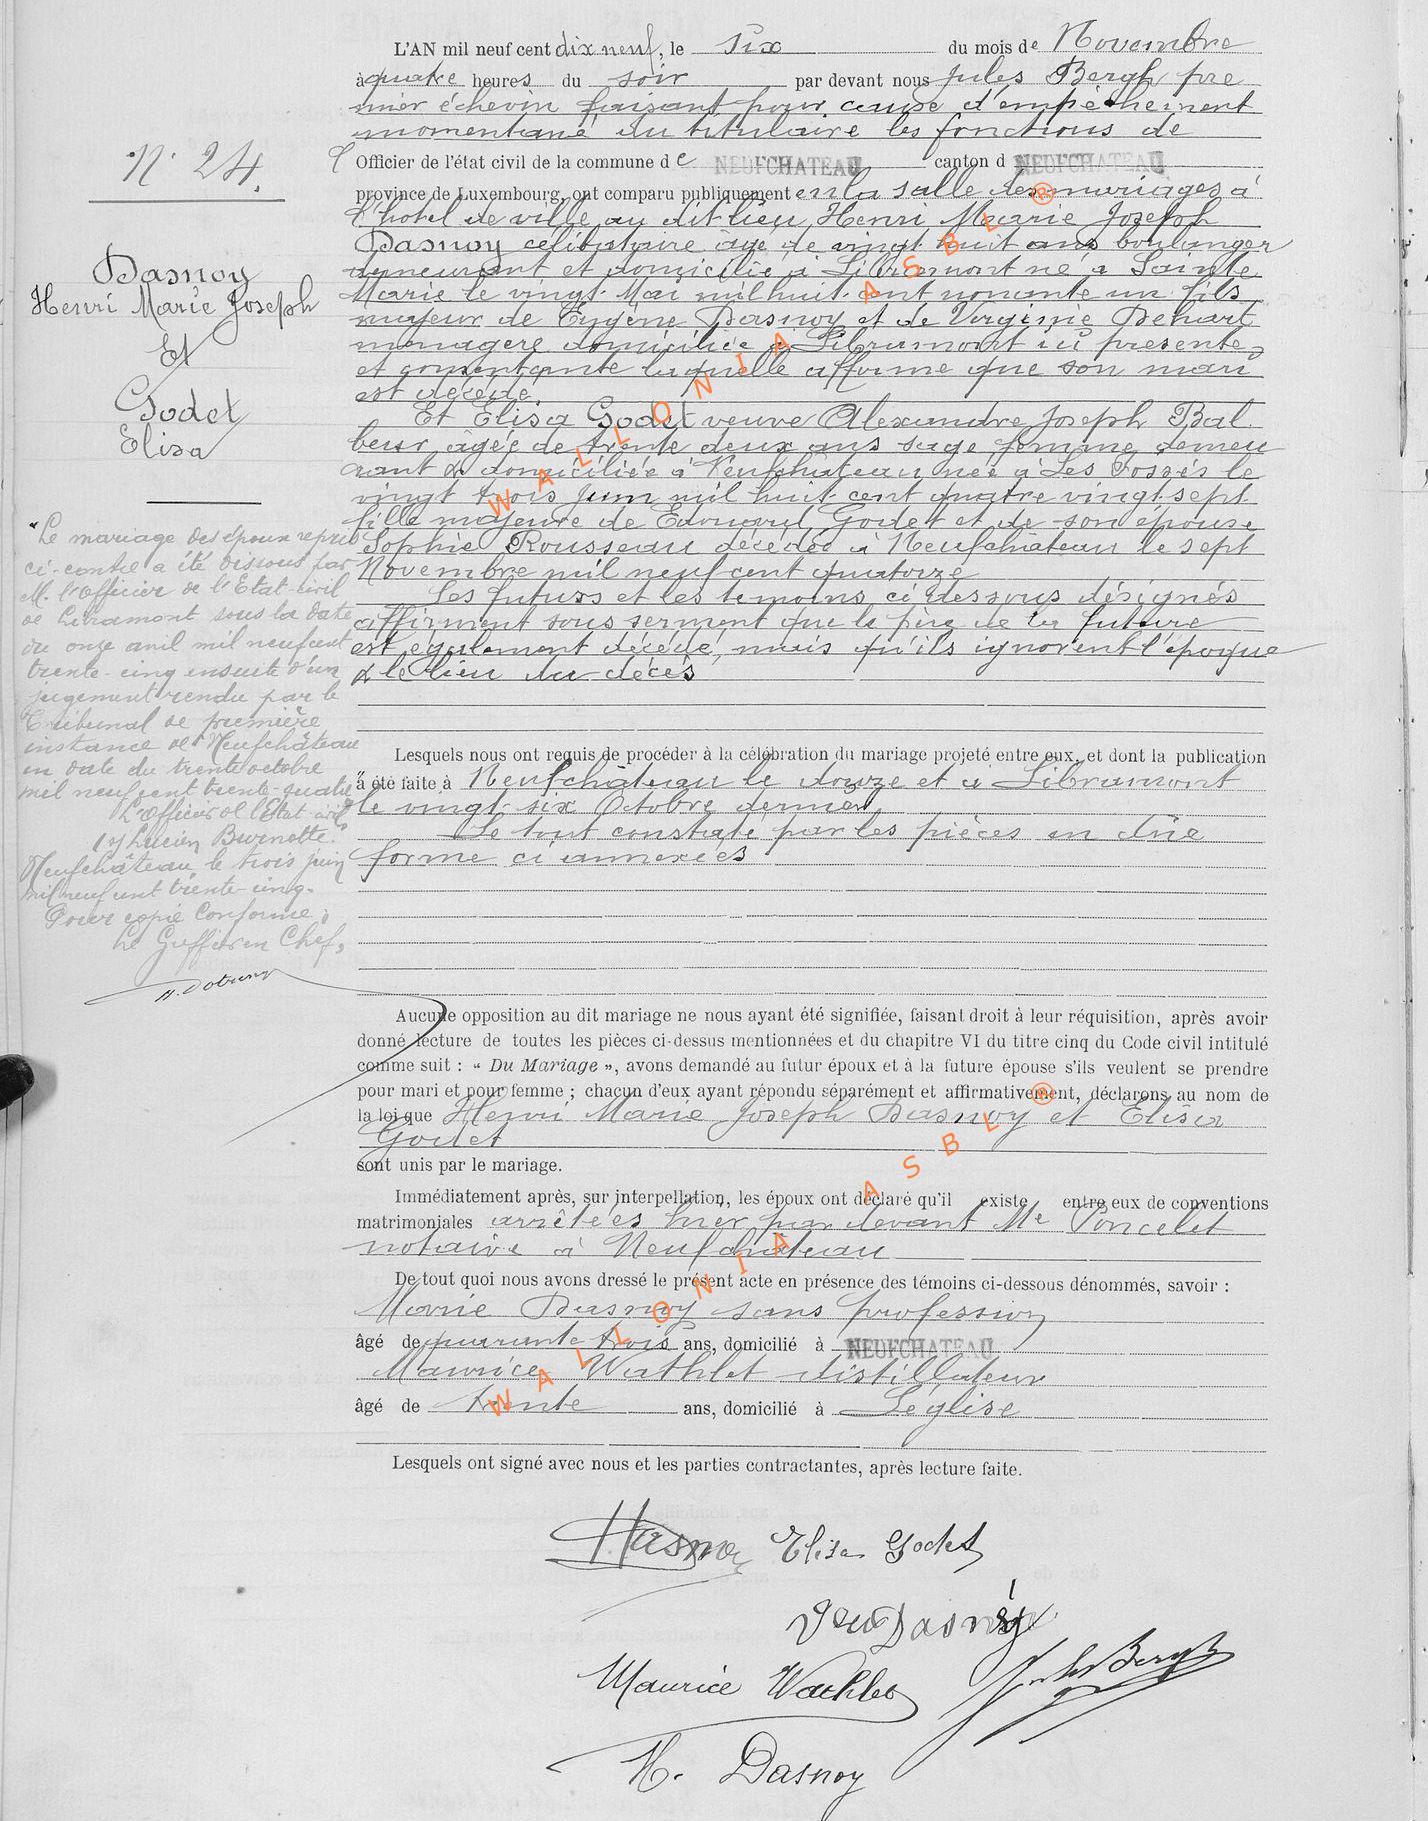 L'AN mil neuf cent dix neuf, le six du mois de Novembre
à quatre heures du soir par devant nous Jules Bergh pre
mier échevin faisant pour cause d'empêchement
momentané du titulaire les fonctions de
Officier de l'état civil de la commune de NEUFCHATEAU canton d NEUFCHATEAU
province de Luxembourg, ont comparu publiquement en la salle des mariages à
l'hotel de ville au dit lieu Henri Marie Joseph
Dasnoy célibataire âgé de vingt huit ans boulanger
demeurant et domicilié à Libramont né à Sainte
Marie le vingt Mai mil huit cent nonante un fils
majeur de Eugène Dasnoy et de Virginie Dehart
ménagère domiciliée à Libramont ici présente
et consentante laquelle affirme que son mari
est décédé.
Et Elisa Godet veuve Alexandre Joseph Bal
beur âgée de trente deux ans sage femme demeu
rant & domiciliée à Neufchateau née à Les Fossés le
vingt trois Juin mil huit cent quatre vingt sept
fille majeure de Edouard Godet et de son épouse
Sophie Rousseau décédée à Neufchâteau le sept
Novembre mil neuf cent quatorze
Les futurs et les témoins ci dessous désignés
affirment sous serment que le père de la future
est également décédé, mais qu'ils ignorent l'époque
& le lieu du décès
N° 24.
Dasnoy
Henri Marie Joseph
Et
Godet
Elisa
"Le mariage des époux repris
ci-contre a été dissous par
M. l'Officier de l'Etat-civil
de Libramont sous la date
du onze avril mil neuf cent
trente-cinq ensuite d'un
jugement rendu par le
Tribunal de première
instance de Neufchâteau
en date du trente octobre
mil neuf cent trente-quatre
L'Officier de l'Etat civil
(s) Lucien Burnotte."
Neufchâteau, le trois juin
mil neuf cent trente-cinq.
Pour copie conforme,
Le Greffier en Chef,
Lesquels nous ont requis de procéder à la célébration du mariage projeté entre eux, et dont la publication
a été faite à Neufchâteau le douze et à Libramont
le vingt-six Octobre dernier
Le tout constaté par les pièces en dûe
forme ci annexées
Aucune opposition au dit mariage ne nous ayant été signifiée, faisant droit à leur réquisition, après avoir
donné lecture de toutes les pièces ci-dessus mentionnées et du chapitre VI du titre cinq du Code civil intitulé
comme suit : « Du Mariage », avons demandé au futur époux et à la future épouse s'ils veulent se prendre
pour mari et pour femme ; chacun d'eux ayant répondu séparément et affirmativement, déclarons au nom de
la loi que Henri Marie Joseph Dasnoy et Elisa
Godet
sont unis par le mariage.
Immédiatement après, sur interpellation, les époux ont déclaré qu'il existe entre eux de conventions
matrimoniales arrêtées hier par devant Me Poncelet
notaire à Neufchâteau
De tout quoi nous avons dressé le présent acte en présence des témoins ci-dessous dénommés, savoir :
Marie Dasnoy sans profession
âgé de quarante trois ans, domicilié à NEUFCHATEAU
Maurice Wathlet distillateur
âgé de trente ans, domicilié à Léglise
Lesquels ont signé avec nous et les parties contractantes, après lecture faite.
HDasnoy Elisa Godet
Dasnoy
Maurice Wathlet Jules Bergh
M. Dasnoy
WALLONIA ASBL ®
WALLONIA ASBL ®